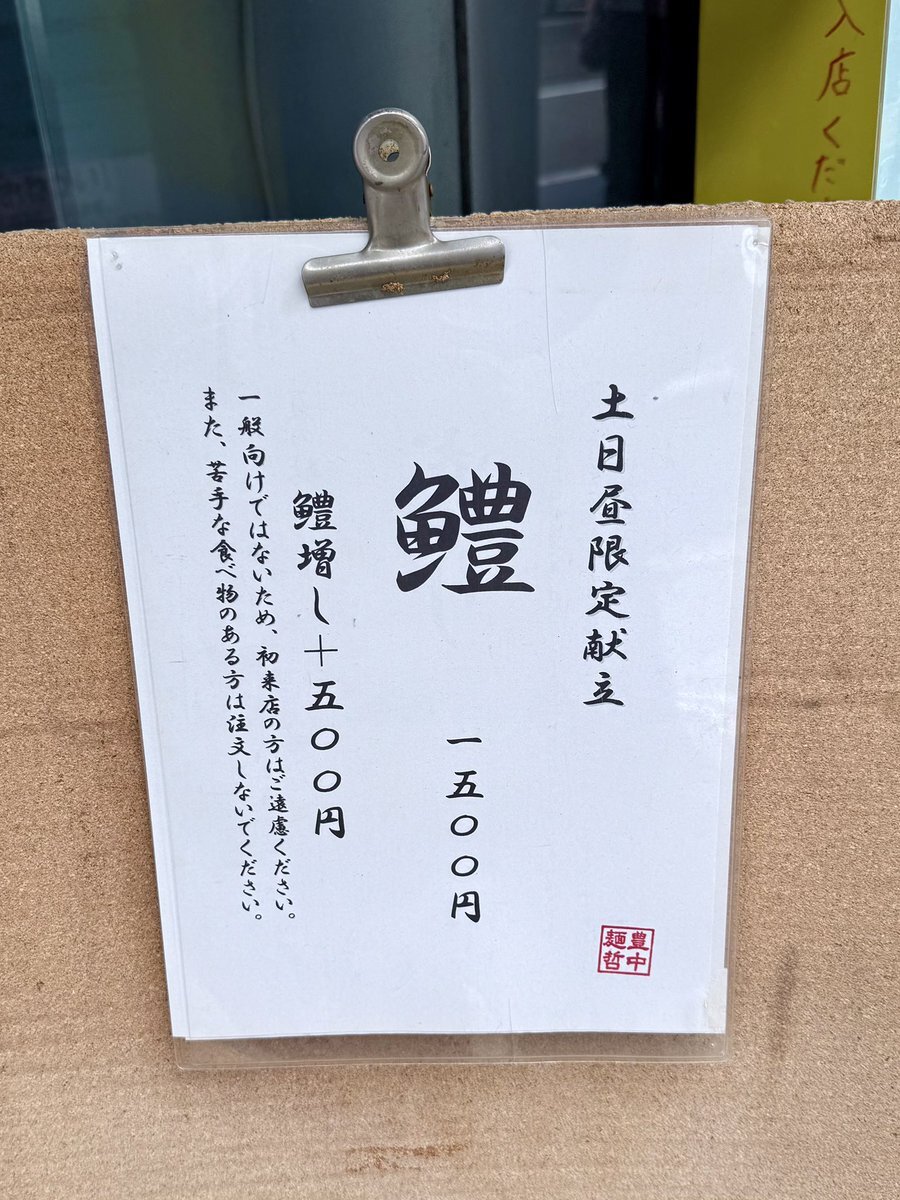 土日昼限定献立
鱧 一五〇〇円
鱧増し＋五〇〇円
一般向けではないため、初来店の方はご遠慮ください。
また、苦手な食べ物のある方は注文しないでください。
豊中
麺哲
入店くだ